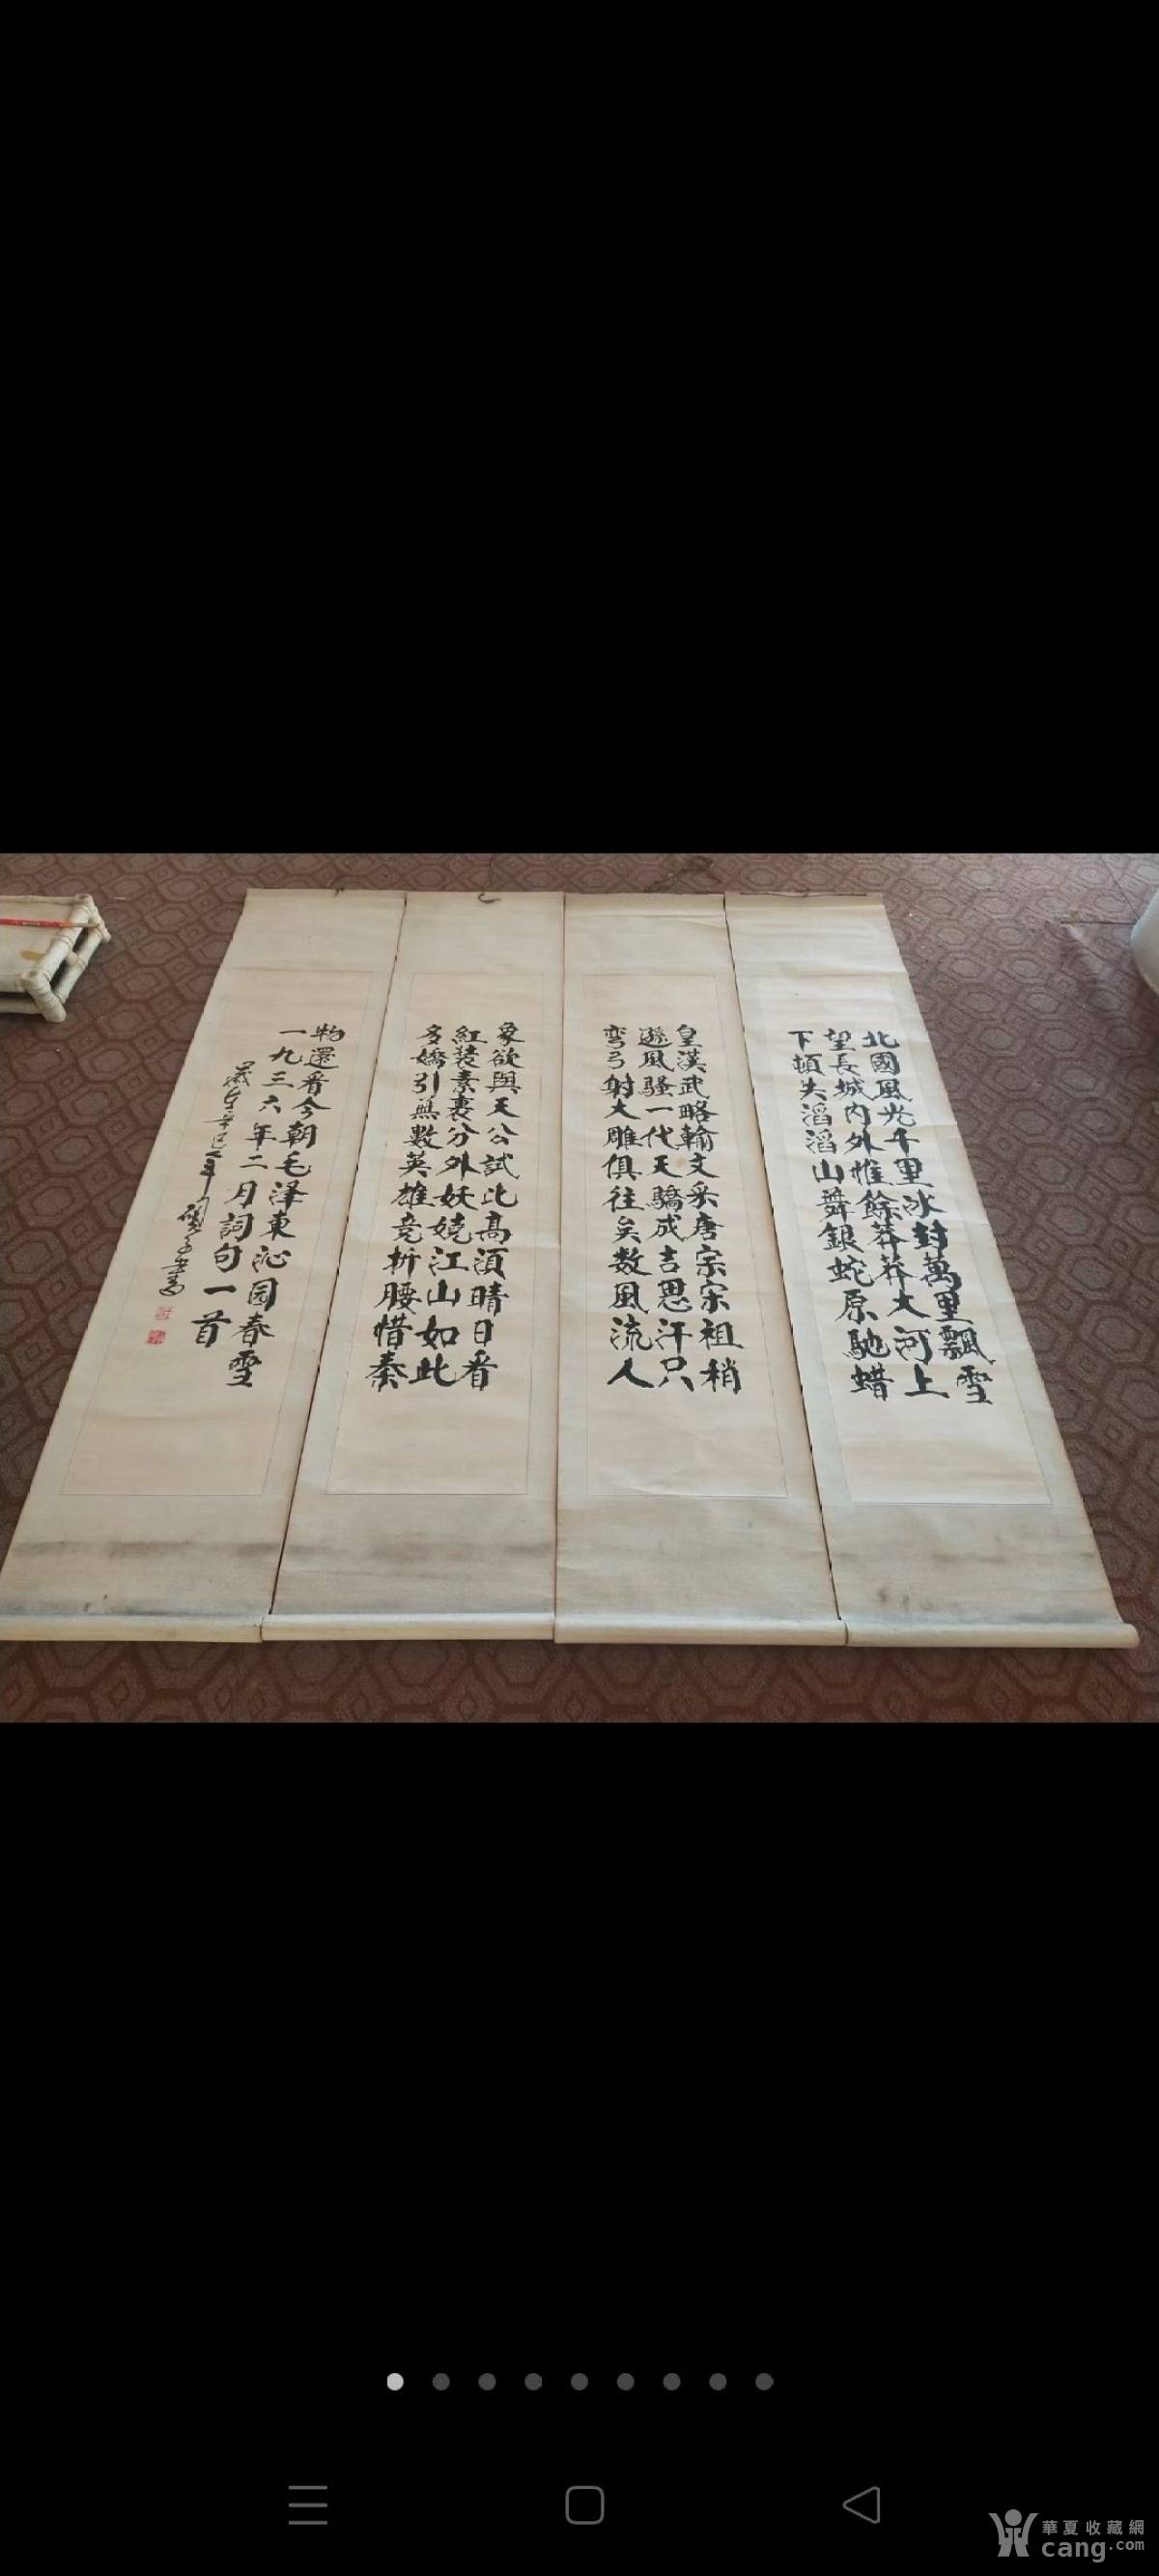 北國風光千里冰封萬里飄雪
望長城内外惟餘莽莽大河上
下頓失滔滔山舞銀蛇原馳蜡
皇漢武略輸文采唐宗宋祖稍
遜風騷一代天驕成吉思汗只
弯弓射大雕俱往矣数風流人
象欲與天公試比高須晴日看
紅装素裹分外妖嬈江山如此
多嬌引無數英雄竞折腰惜秦
物還看今朝毛泽東沁园春雪
一九三六年二月詞句一首
歲在辛巳年
華夏收藏網
cang.com